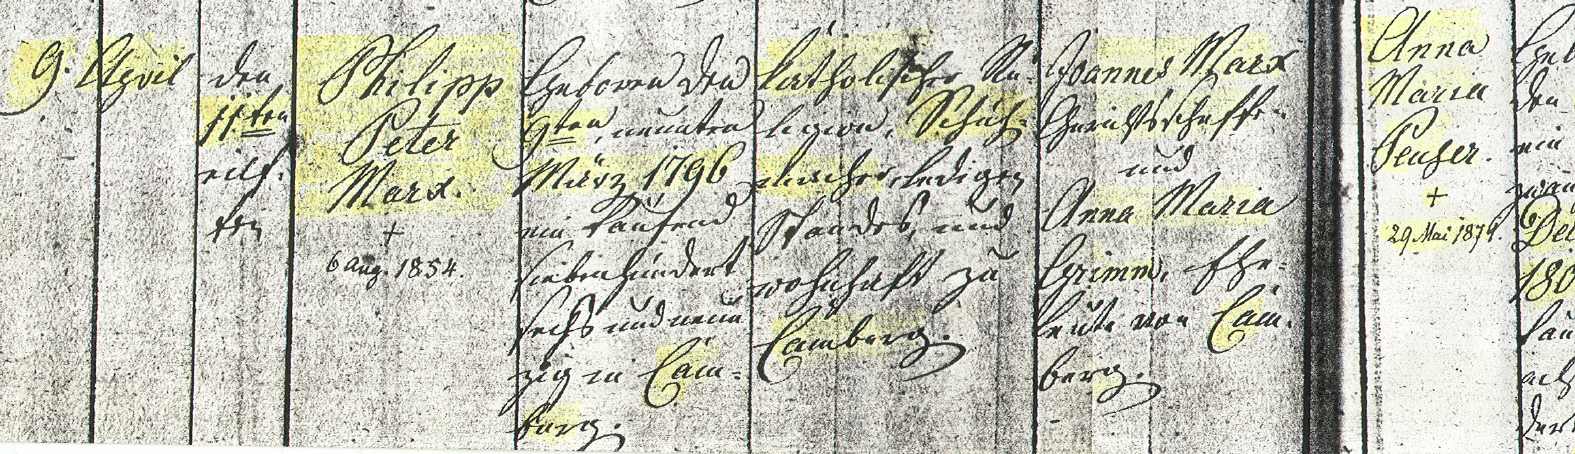 9. April
den
11ten
eilf-
ten
Philipp
Peter
Marx.
+
6 Aug. 1854.
Geboren den
9ten, neunten
März 1796
ein tausend
siebenhundert
sechs und neun
zig in Cam-
berg.
katholischer Re-
ligion, Schuh-
macher ledigen
Standes, und
wohnhaft zu
Camberg.
Joannes Marx
Gerichtsschöffe
und
Anna Maria
Grimm, Ehe-
leute von Cam-
berg.
Anna
Maria
+
29 Mai 1879.
den
ein
180